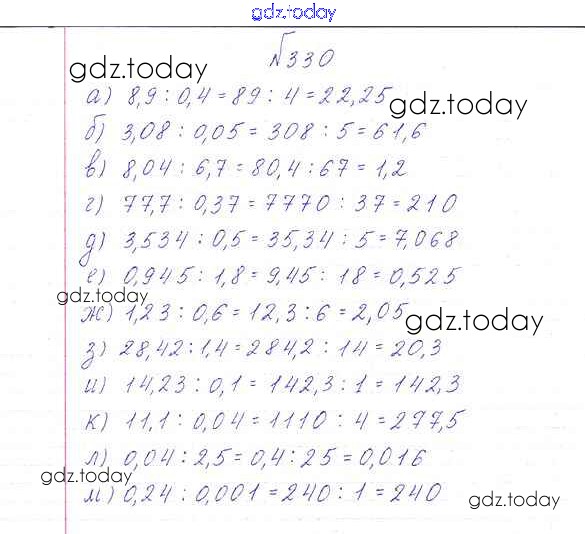 gdz.today
№330
gdz.today
а) 8,9 : 0,4 = 89 : 4 = 22,25
gdz.today
б) 3,08 : 0,05 = 308 : 5 = 61,6
в) 8,04 : 6,7 = 80,4 : 67 = 1,2
г) 77,7 : 0,37 = 7770 : 37 = 210
д) 3,534 : 0,5 = 35,34 : 5 = 7,068
е) 0,945 : 1,8 = 9,45 : 18 = 0,525
gdz.today
ж) 1,23 : 0,6 = 12,3 : 6 = 2,05
gdz.today
з) 28,42 : 1,4 = 284,2 : 14 = 20,3
и) 14,23 : 0,1 = 142,3 : 1 = 142,3
к) 11,1 : 0,04 = 1110 : 4 = 277,5
л) 0,04 : 2,5 = 0,4 : 25 = 0,016
gdz.today
м) 0,24 : 0,001 = 240 : 1 = 240
gdz.today